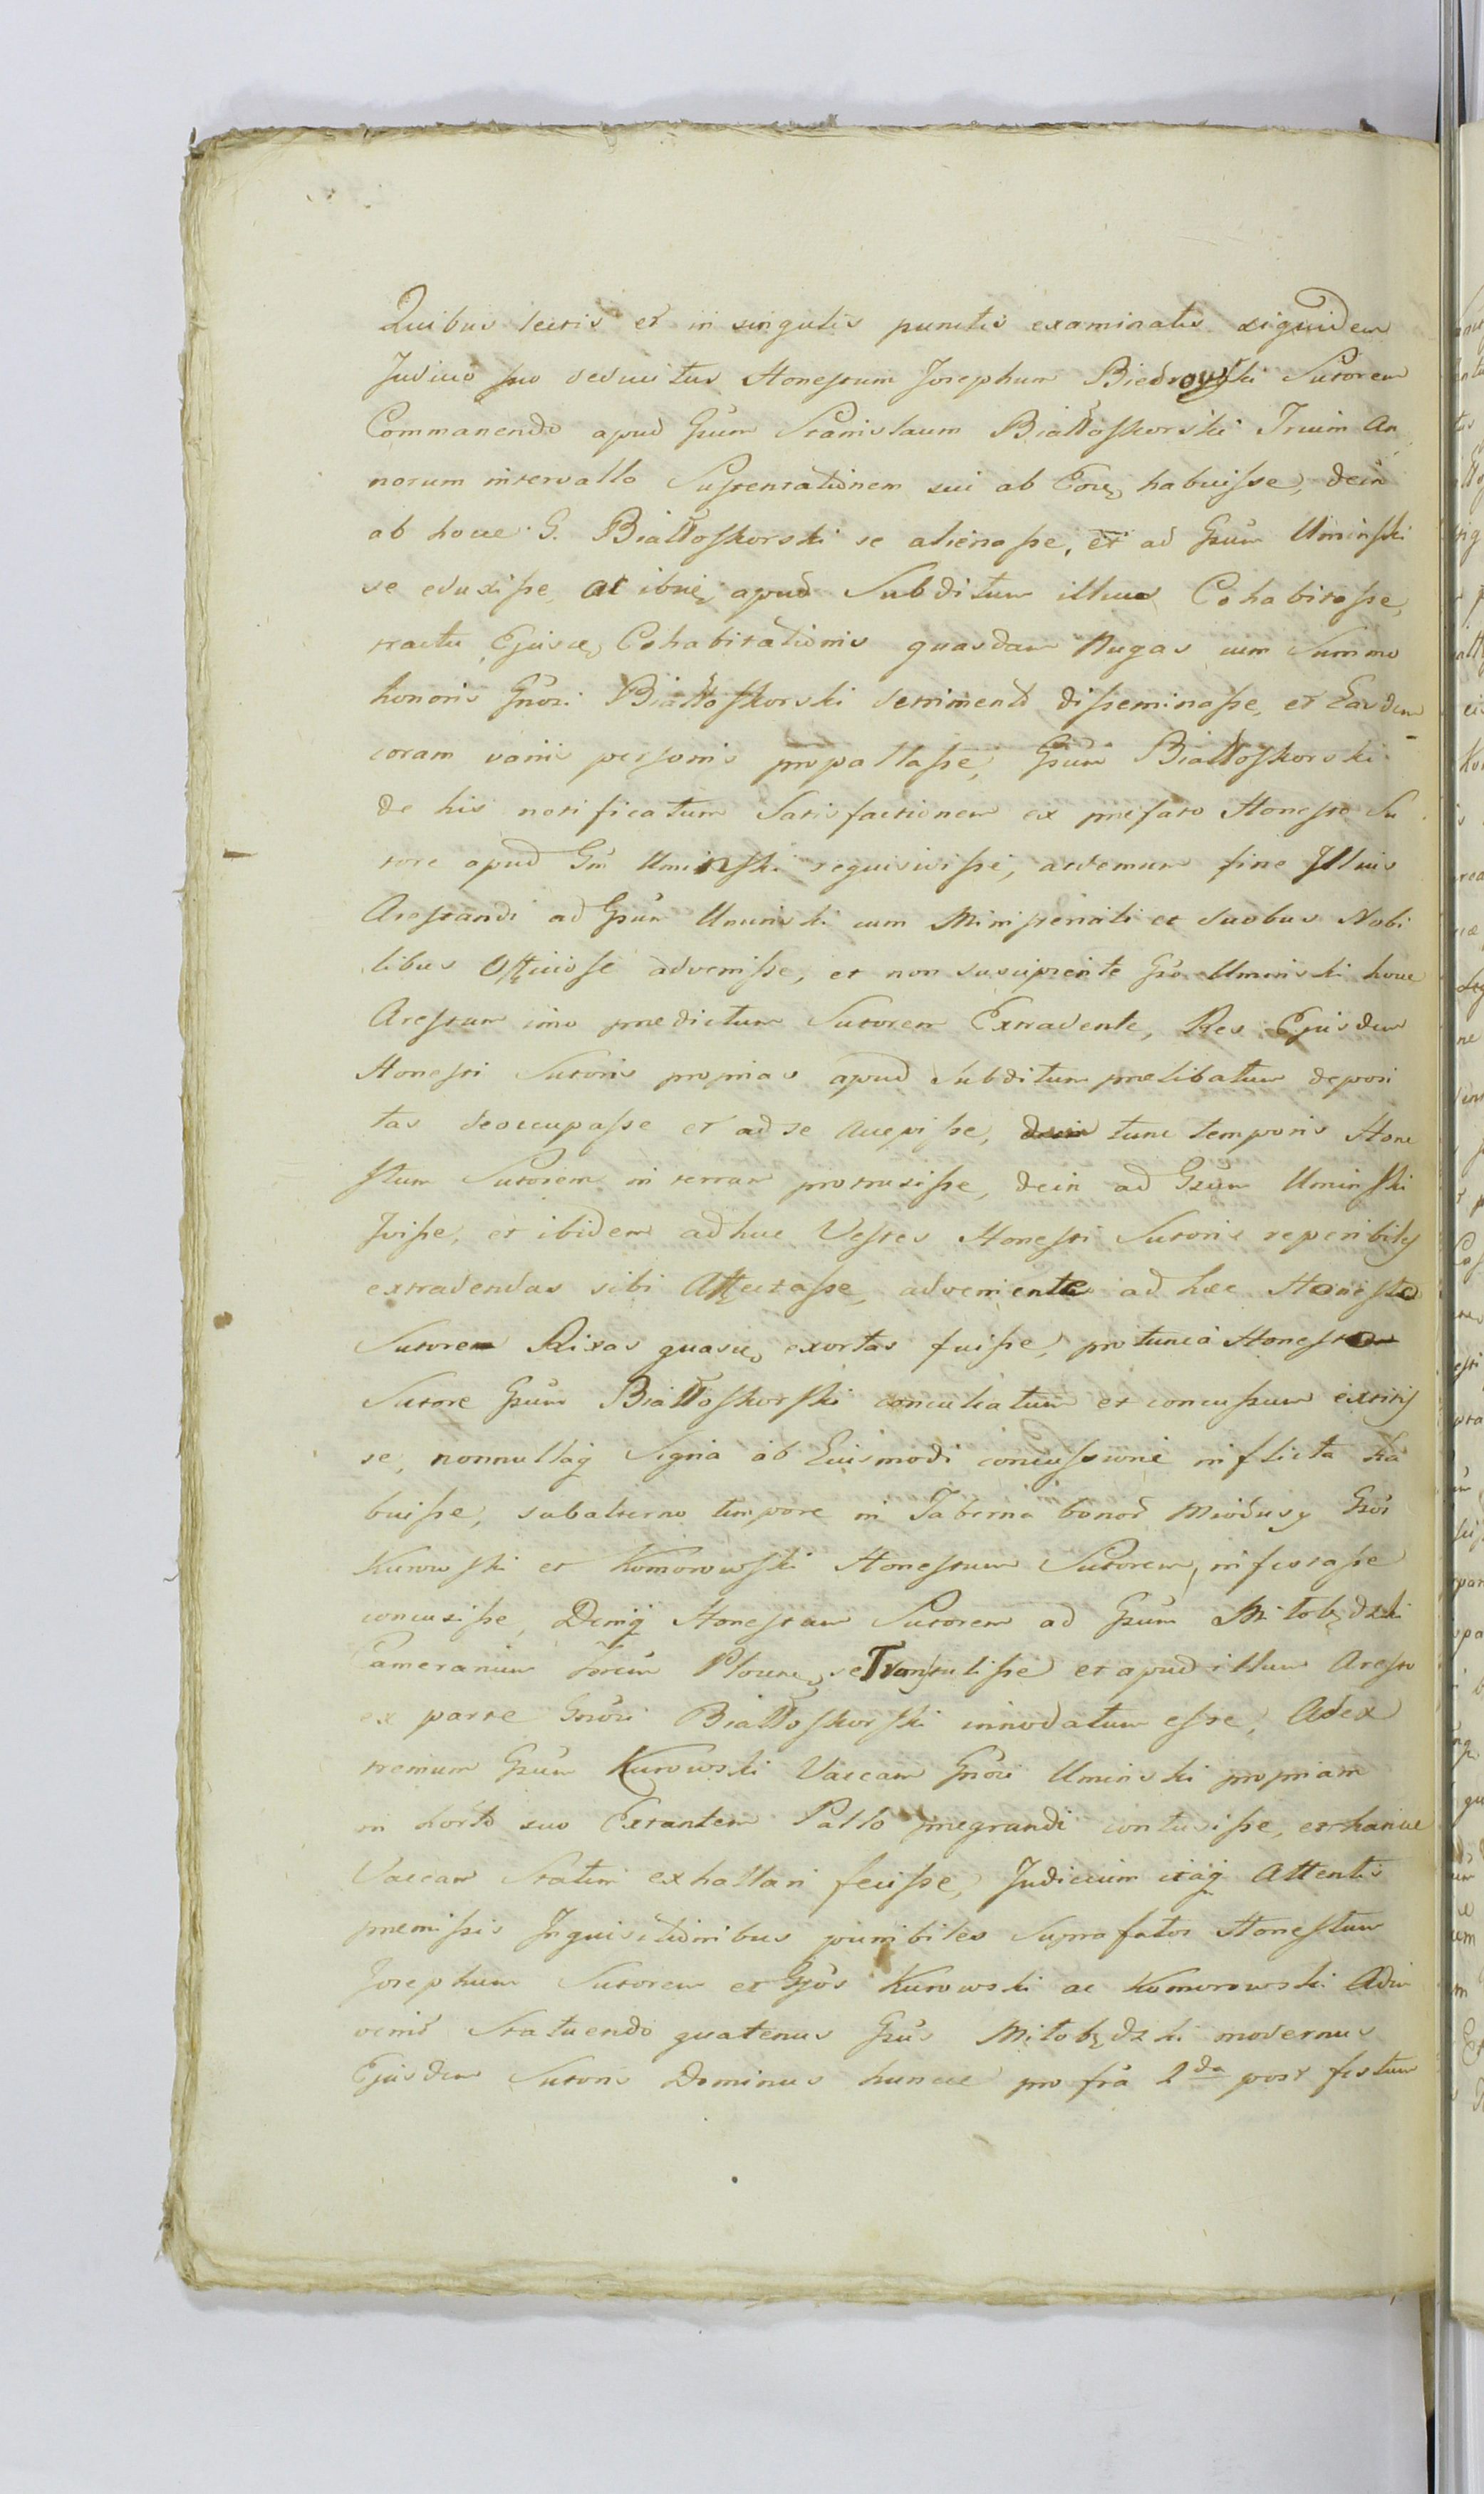 Quibus lectis et in singulis punctis examinatis siquidem
Judicio suo deducitur Honestum Josephum Biedrowski Sutorem
Commanendo apud Gsum Stanislaum Białłoskorski Trium An
norum intervallo Sustentationem sui ab Eoce habuisse, dein
ab hocce G. Białłoskorski se alienasse, et ad Gsum Uminski
se eduxisse, at ibiie apud Subditum illius Cohabitasse,
tractu Ejusce Cohabitationis quasdam Nugas cum Summo
honoris Gnosi Białłoskorski detrimento disseminasse, et Easdem
coram variis personis propallasse, Gsum Białłoskorski
de his notificatum Satisfactionem ex præfato Honesto Su
tore apud Gm Uminski requisivisse, ac demum fine Illius
Arestandi ad Gsum Uminski cum Ministeriali et duobus Nobi
libus Officiose advenisse, et non suscipiente Gso Uminski hocce
Arestum imo prædictum Sutorem Extradente, Res Ejusdem
Honesti Sutoris proprias apud Subditum prælibatum deposi
tas deoccupasse et ad se accepisse, tunc temporis Hone
stum Sutorem in terram protrusisse, dein ad Gsum Uminski
Ivisse, et ibidem adhuc Vestes Honesti Sutoris reperibiles
extradendas sibi Affectasse, adveniente ad hæc Honesto
Sutore Rixas quasce exortas fuisse, protunc a Honesto
Sutore Gsum Białłoskorski conculcatum et concussum extitis
se, nonnullaq Signa ab Eiusmodi concussione inflicta ha
buisse, subalterno tempore in Taberna bonor Miodusy Gsos
Kurowski et Komorowski Honestum Sutorem infestasse
concusisse, Deniq Honestum Sutorem ad Gsum Miłobędzki
Camerarium Plocen se Transtulisse et apud illum Aresto
ex parte Gnosi Białłoskorski innodatum esse, Adex
tremum Gsum Kurowski Vaccam Gnosi Uminski propriam
in horto suo Extantem Pallo prægrandi contusisse, et hancce
Vaccam Statim exhallari fecisse, Judicium itaq Attentis
præmissis Inquisitionibus punibiles Suprafatos Honestum
Josephum Sutorem et Gsos Kurowski ac Komorowski Adin
venit Statuendo quatenus Gsus Miłobędzki modernus
Ejusdem Sutoris Dominus huncce pro fra 2da post festum